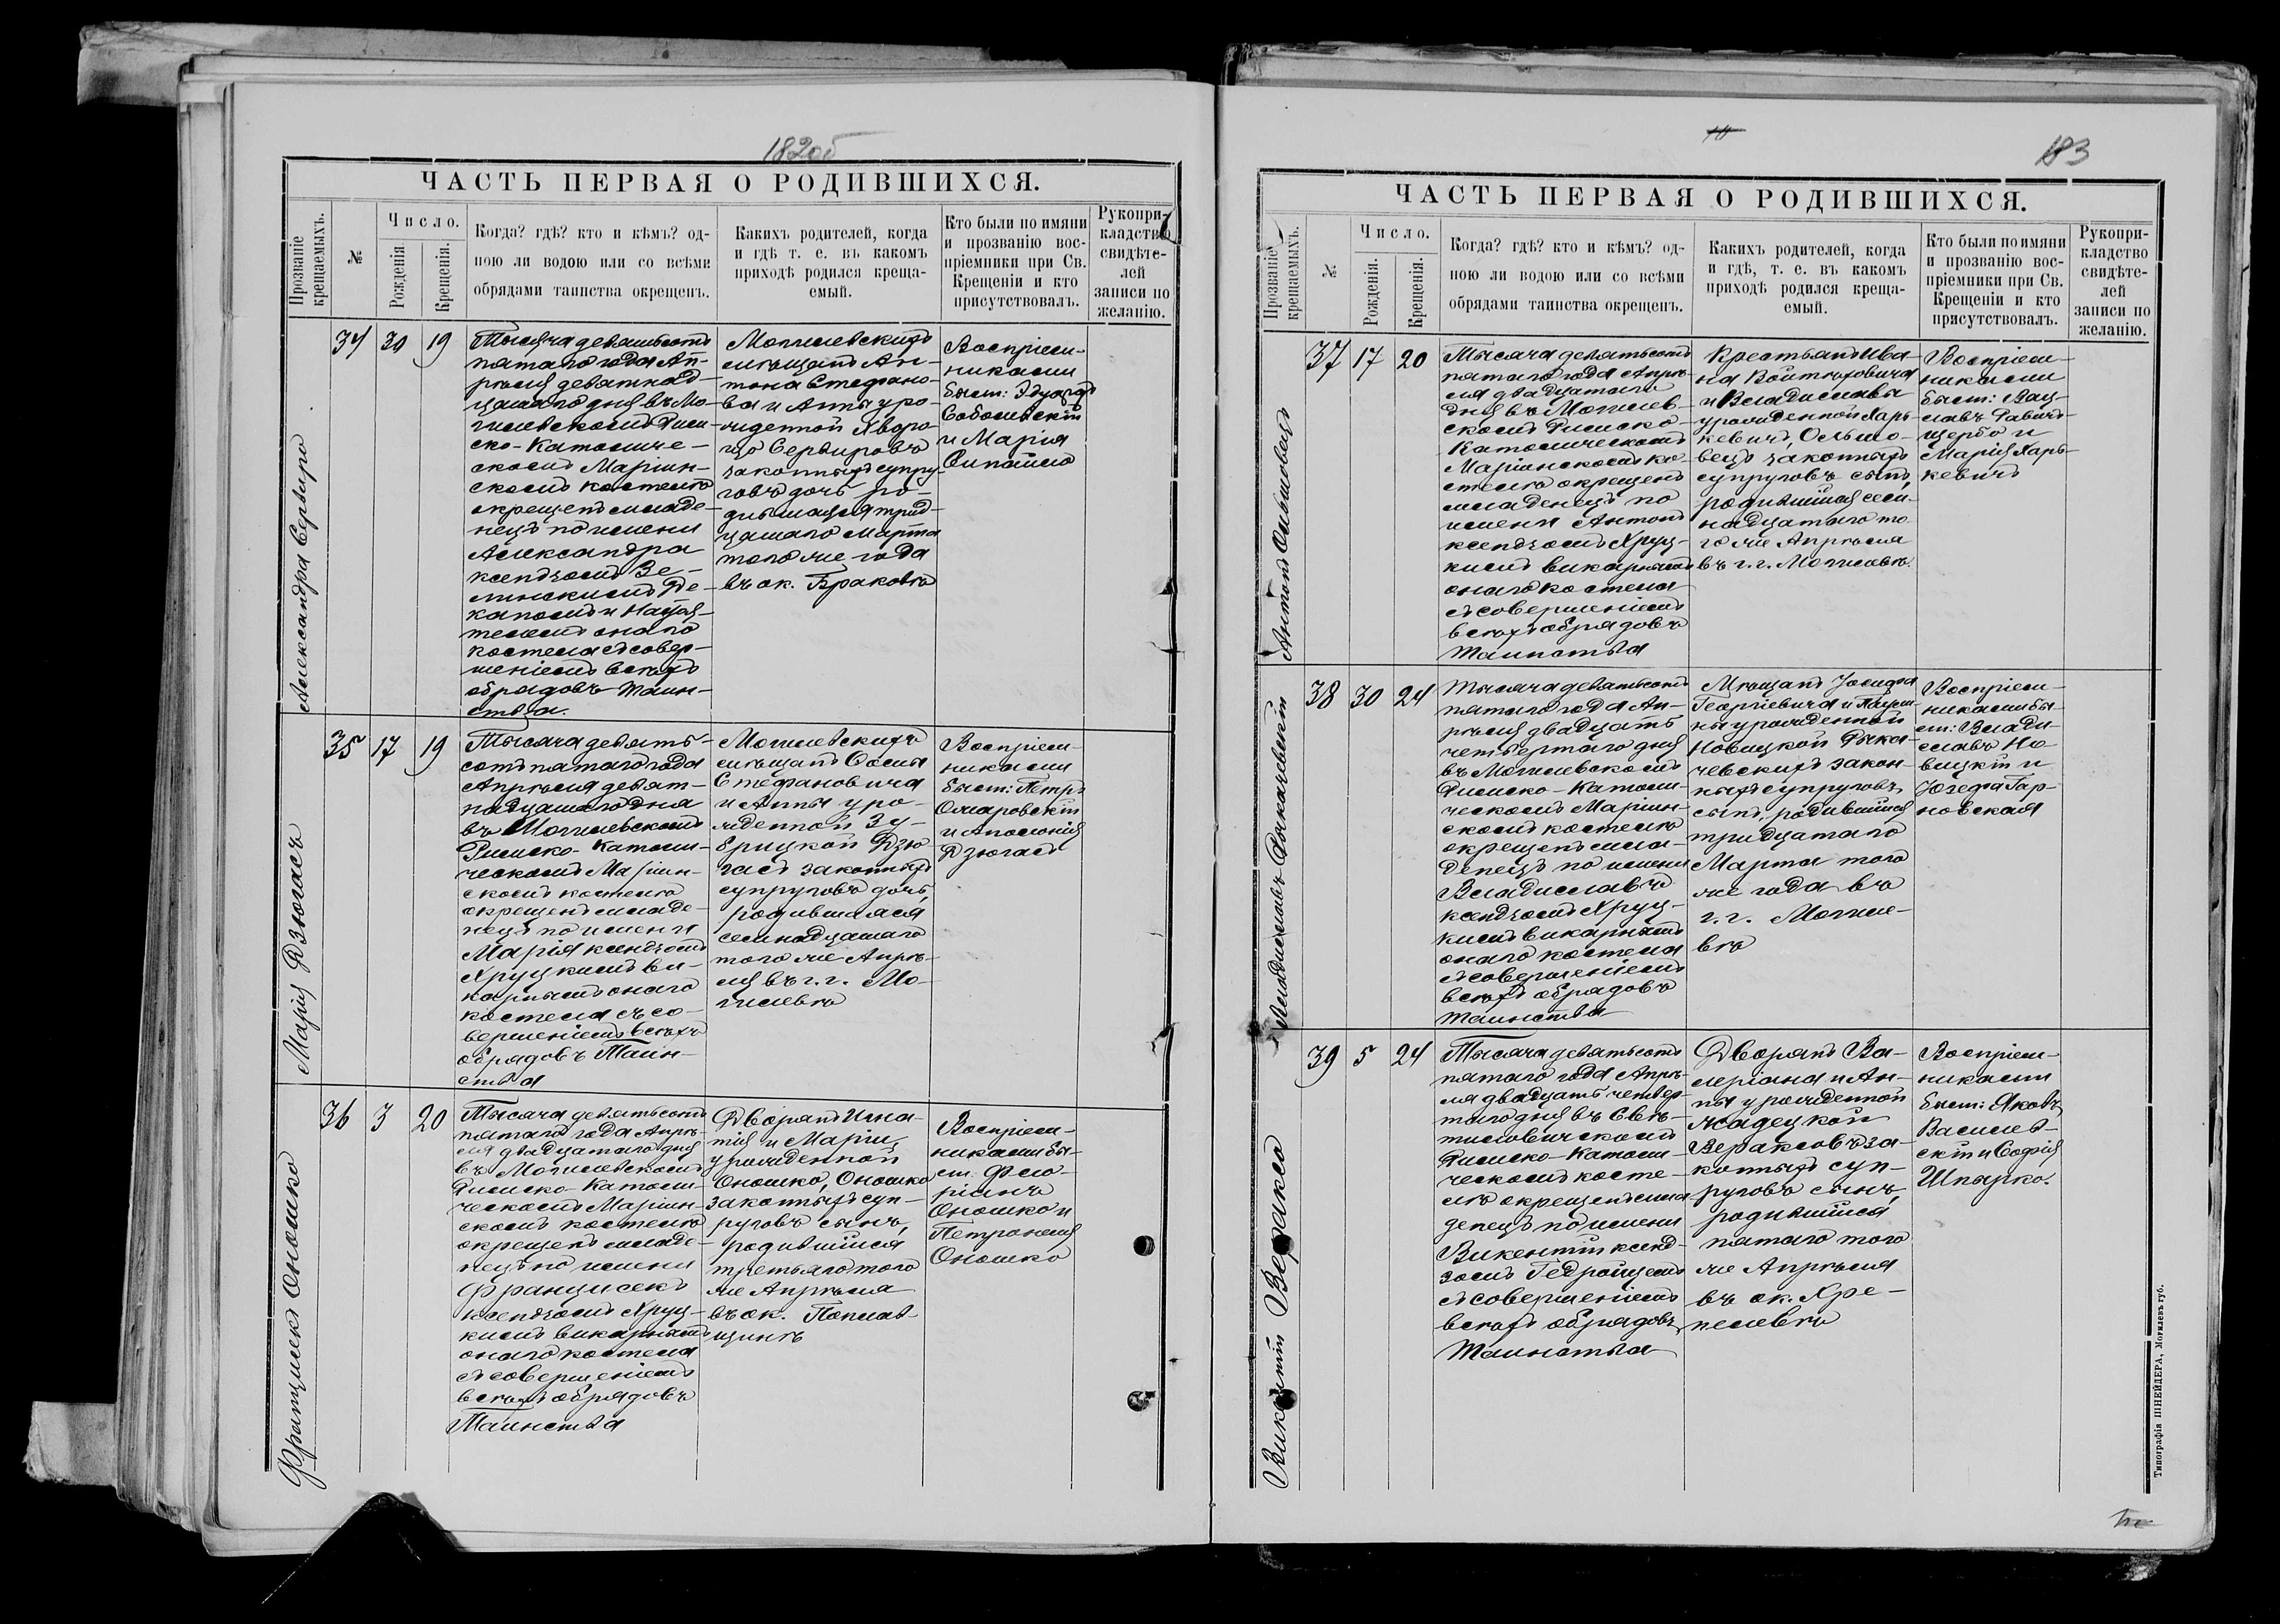 182об
ЧАСТЬ ПЕРВАЯ О РОДИВШИХСЯ.
Прозваніе крещаемыхъ.
№
Число.
Рожденія.
Крещенія.
Когда? гдѣ? кто и кѣмъ? од-
ною ли водою или со всѣми
обрядами таинства окрещенъ.
Какихъ родителей, когда
и гдѣ т. е. въ какомъ
приходѣ родился креща-
емый.
Кто были по имяни
и прозванію вос-
пріемники при Св.
Крещеніи и кто
присутствовалъ.
Рукопри-
кладство
свидѣте-
лей
записи по
желанію.
Александра Сервиро
34
30
19
Тысяча девятьсотъ
пятаго года Ап-
рѣля девятнад-
цатаго дня въ Мо-
гилевскомъ Рим-
ско-Католиче-
скомъ Маріин-
скомъ костелѣ
окрещенъ младе-
нецъ по имени
Александра
ксендзомъ Зе-
линскимъ Де-
каномъ и Настоя-
телемъ онаго
костела съ совер-
шеніемъ всѣхъ
обрядовъ Таин-
ства.
Могилевскихъ
мѣщанъ Ан-
тона Стефано-
ва и Анны уро-
жденной
Сервировъ
законныхъ супру-
говъ дочь ро-
дившаяся трид-
цатаго Марта
того же года
въ ок. Браковѣ
Воспріем-
никами
были: Эдуардъ
Соболевскій
и Марія
Сипайло
Марія Дзюгасъ
35
17
19
Тысяча девять-
сотъ пятаго года
Апрѣля девят-
надцатаго дня
въ Могилевскомъ
Римско-Католи-
ческомъ Маріин-
скомъ костелѣ
окрещенъ младе-
нецъ по имени
Марія ксендзомъ
Хруцкимъ ви-
карнымъ онаго
костела съ со-
вершеніемъ всѣхъ
обрядовъ Таин-
ства
Могилевскихъ
мѣщанъ Осипа
Стефановича
и Анны уро-
жденной Зу-
брицкой Дзю-
гасъ законныхъ
супруговъ дочь,
родившаяся
семнадцатаго
того же Апрѣ-
ля въ г. г. Мо-
гилевѣ
Воспріем-
никами
были: Петръ
Омаровскій
и Аполонія
Дзюгасъ
Францишекъ Оношко
36
3
20
Тысяча девятьсотъ
пятаго года Апрѣ-
ля двадцатаго дня
въ Могилевскомъ
Римско-Католи-
ческомъ Маріин-
скомъ костелѣ
окрещенъ младе-
нецъ по имени
Францисекъ
ксендзомъ Хруц-
кимъ викарнымъ
онаго костела
съ совершеніемъ
всѣхъ обрядовъ
Таинства
Дворянъ Игна-
тія и Маріи,
урожденной
Оношко, Оношко
законныхъ суп-
руговъ сынъ,
родившійся
третьяго того
же Апрѣля
въ ок. Поплав-
щинѣ
Воспріем-
никами бы-
ли: Фло-
ріанъ
Оношко и
Петронеля
Оношко
183
ЧАСТЬ ПЕРВАЯ О РОДИВШИХСЯ.
Прозваніе крещаемыхъ.
№
Число.
Рожденія.
Крещенія.
Когда? гдѣ? кто и кѣмъ? од-
ною ли водою или со всѣми
обрядами таинства окрещенъ.
Какихъ родителей, когда
и гдѣ, т. е. въ какомъ
приходѣ родился креща-
емый.
Кто были по имяни
и прозванію вос-
пріемники при Св.
Крещеніи и кто
присутствовалъ.
Рукопри-
кладство
свидѣте-
лей
записи по
желанію.
Антонъ Ольшовецъ
37
17
20
Тысяча девятьсотъ
пятаго года Апрѣ-
ля двадцатаго
дня въ Могилев-
скомъ Римско-
Католическомъ
Маріинскомъ ко-
стелѣ окрещенъ
младенецъ по
имени Антонъ
ксендзомъ Хруц-
кимъ викарнымъ
онаго костела
съ совершеніемъ
всѣхъ обрядовъ
Таинства
Крестьянъ Ива-
на Войтѣховича
и Владиславы
урожденной Харь-
кевичъ, Ольшо-
вецъ законныхъ
супруговъ сынъ,
родившійся сем-
надцатаго то-
го же Апрѣля
въ г. г. Могилевѣ.
Воспріем-
никами
были: Вац-
лавъ Равичъ-
Щербо и
Марія Харь-
кевичъ
Владиславъ Рынкачевскій
38
30
24
Тысяча девятьсотъ
пятаго года Ап-
рѣля двадцать
четвертаго дня
въ Могилевскомъ
Римско-Католи-
ческомъ Маріин-
скомъ костелѣ
окрещенъ мла-
денецъ по имени
Владиславъ
ксендзомъ Хруц-
кимъ викарнымъ
онаго костела
съ совершеніемъ
всѣхъ обрядовъ
Таинства
Мѣщанъ Іосифа
Георгіевича и Паули-
ны урожденной
Новицкой
законныхъ супруговъ
сынъ, родившійся
тридцатаго
Марта того
же года въ
г. г. Могиле-
вѣ
Воспріем-
никами бы-
ли: Влади-
славъ Но-
вицкій и
Юзефа Гар-
новская
Викентій Веракса
39
5
24
Тысяча девятьсотъ
пятаго года Апрѣ-
ля двадцать четвер-
таго дня въ Свя-
тиловическомъ
Римско-Католи-
ческомъ косте-
лѣ окрещенъ мла-
денецъ по имени
Викентій ксенд-
зомъ Гедройцемъ
съ совершеніемъ
всѣхъ обрядовъ
Таинства
Дворянъ Ва-
леріана и Ан-
ны урожденной
Жадецкой
Вераксовъ за-
конныхъ суп-
руговъ сынъ,
родившійся
пятаго того
же Апрѣля
въ ок. Хре-
пелевѣ
Воспріем-
никами
были: Яковъ
Василев-
скій и Софія
Шпырко.
Типографія ШНЕЙДЕРА, Могилевъ губ.